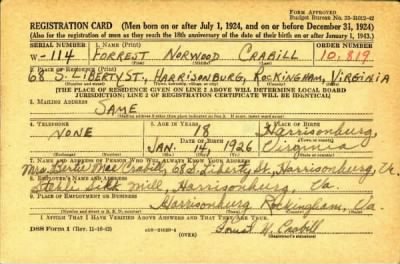 REGISTRATION CARD (Men born on or after July 1, 1924, and on or before December 31, 1924)
FORM APPROVED
Budget Bureau No. 33-R012-42
(Also for the registration of men as they reach the 18th anniversary of the date of their birth on or after January 1, 1943.)
SERIAL NUMBER 1. NAME (Print) ORDER NUMBER
W -114 FORREST NORWOOD CRABILL 10,819
(First) (Middle) (Last)
2. PLACE OF RESIDENCE (Print)
68 S. LIBERTY ST., HARRISONBURG, ROCKINGHAM, VIRGINIA
[THE PLACE OF RESIDENCE GIVEN ON LINE 2 ABOVE WILL DETERMINE LOCAL BOARD
JURISDICTION; LINE 2 OF REGISTRATION CERTIFICATE WILL BE IDENTICAL]
3. MAILING ADDRESS
SAME
4. TELEPHONE 5. AGE IN YEARS 6. PLACE OF BIRTH
NONE 18 Harrisonburg,
DATE OF BIRTH
JAN. 14, 1926 Virginia
7. NAME AND ADDRESS OF PERSON WHO WILL ALWAYS KNOW YOUR ADDRESS
Mrs. Bertie Mae Crabill, 68 S. Liberty St., Harrisonburg, Va.
8. EMPLOYER'S NAME AND ADDRESS
Stehli Silk Mill, Harrisonburg, Va.
9. PLACE OF EMPLOYMENT OR BUSINESS
Harrisonburg Rockingham, Va.
I AFFIRM THAT I HAVE VERIFIED ABOVE ANSWERS AND THAT THEY ARE TRUE.
DSS Form 1 (Rev. 11-16-42) Forrest N. Crabill
(Registrant's signature)